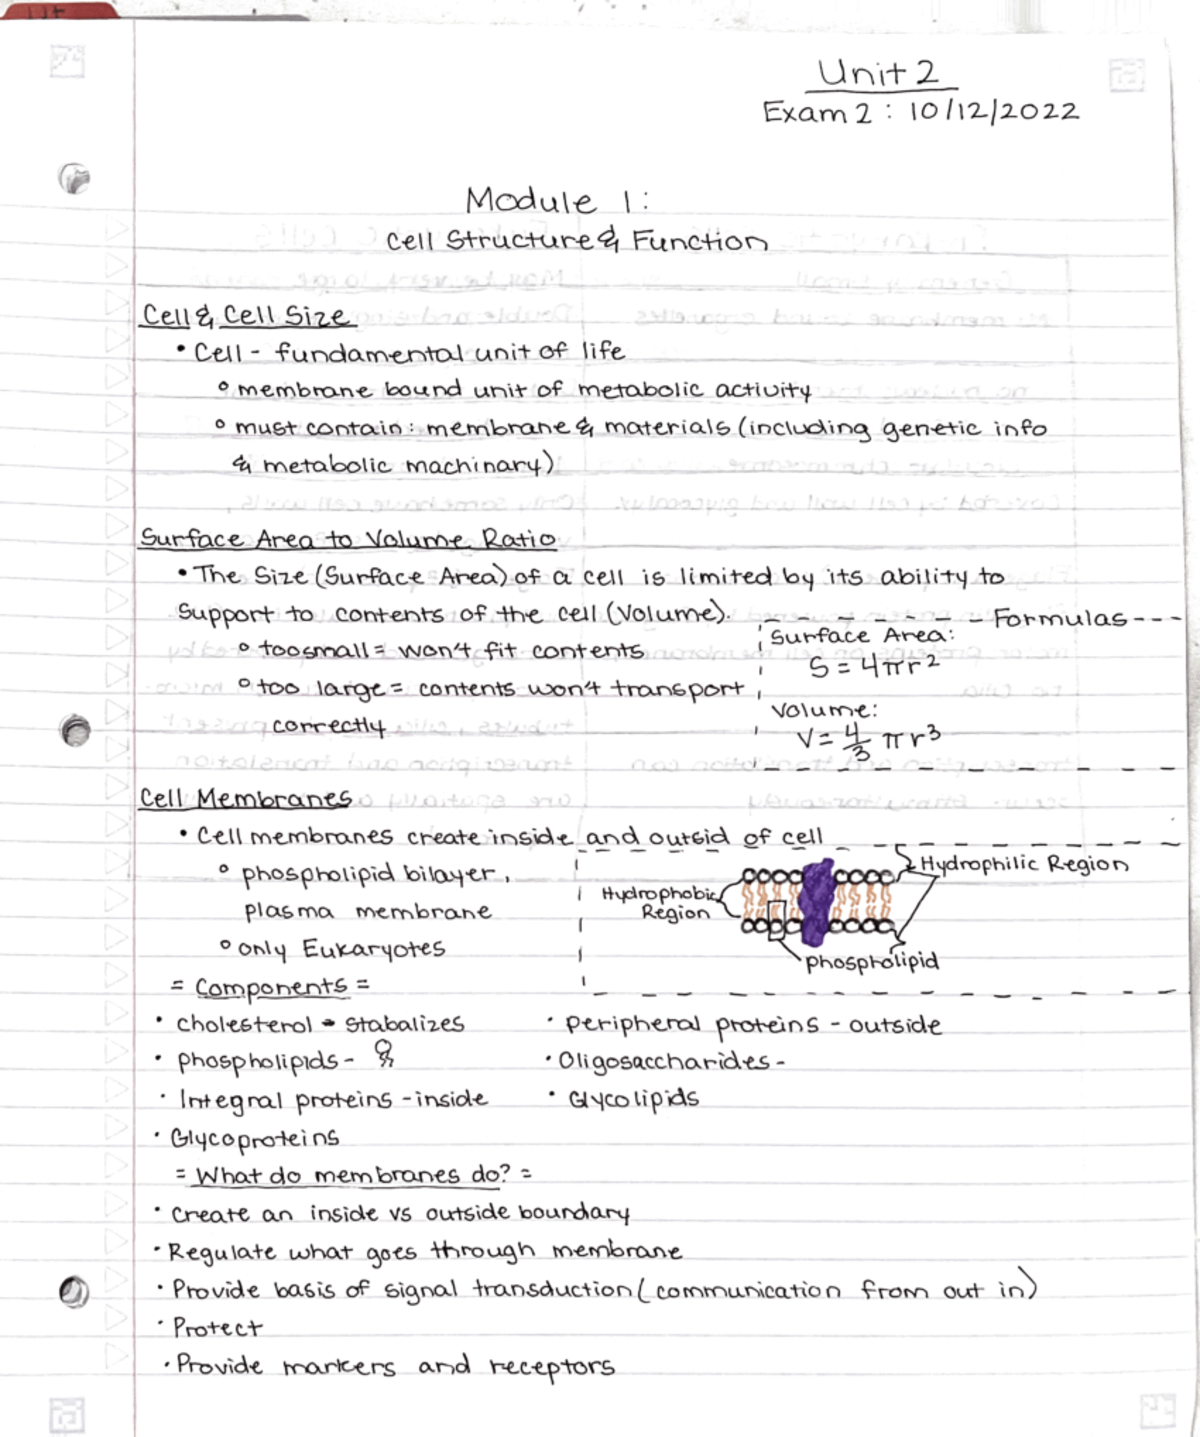 Unit 2
Exam 2 : 10/12/2022
Module 1:
Cell Structure & Function
Cell & Cell Size
• Cell - fundamental unit of life
° membrane bound unit of metabolic activity
° must contain: membrane & materials (including genetic info
& metabolic machinary)
Surface Area to Volume Ratio
• The Size (Surface Area) of a cell is limited by its ability to
Support to contents of the cell (Volume).
° too small = won't fit contents
° too large = contents won't transport
correctly
Formulas
Surface Area:
S = 4πr²
Volume:
V = 4/3 πr³
Cell Membranes
• Cell membranes create inside and outsid of cell
° phospholipid bilayer,
plasma membrane
° only Eukaryotes
Hydrophobic
Region
Hydrophilic Region
phospholipid
= Components =
• cholesterol - stabalizes
• phospholipids -
• Integral proteins - inside
• Glycoproteins
• peripheral proteins - outside
• Oligosaccharides -
• Glycolipids
= What do membranes do? =
• Create an inside vs outside boundary
• Regulate what goes through membrane
• Provide basis of signal transduction (communication from out in)
• Protect
• Provide markers and receptors